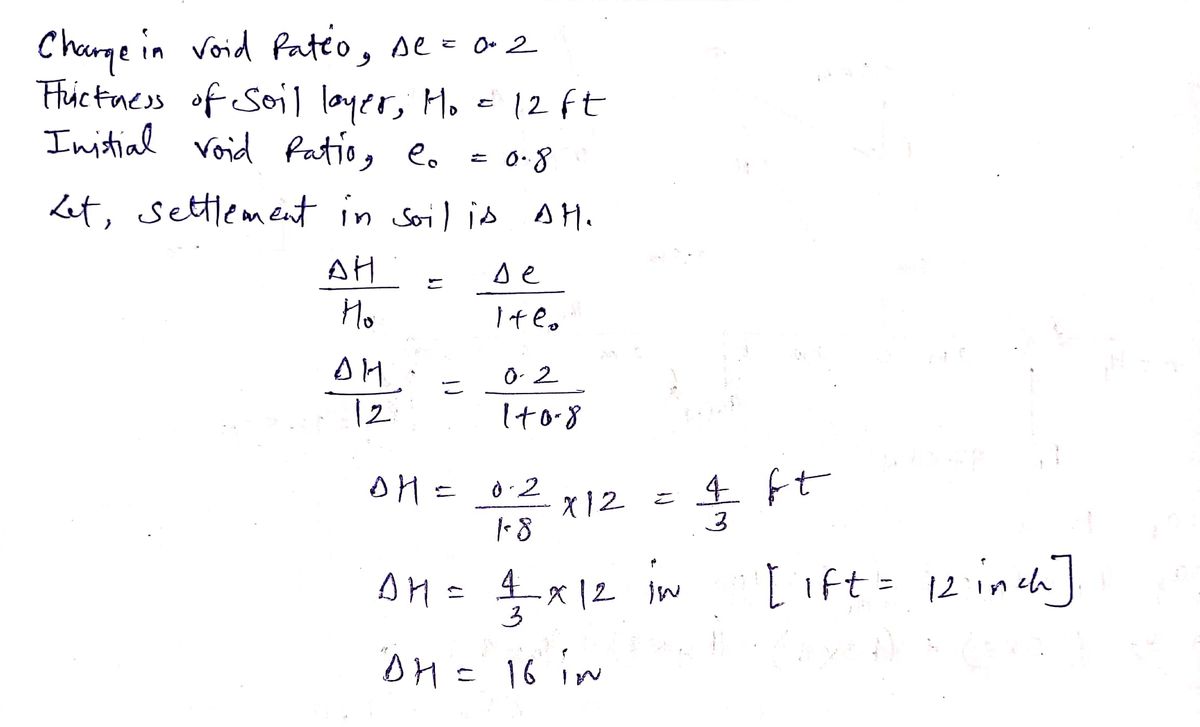 Change in void Ratio, Δe = 0.2
Thickness of Soil layer, H₀ = 12 ft
Initial void Ratio, e₀ = 0.8
Let, settlement in soil is ΔH.
ΔH/H₀ = Δe/1+e₀
ΔH/12 = 0.2/1+0.8
ΔH = 0.2/1.8 x12 = 4/3 ft
ΔH = 4/3 x12 in [1ft = 12 inch]
ΔH = 16 in